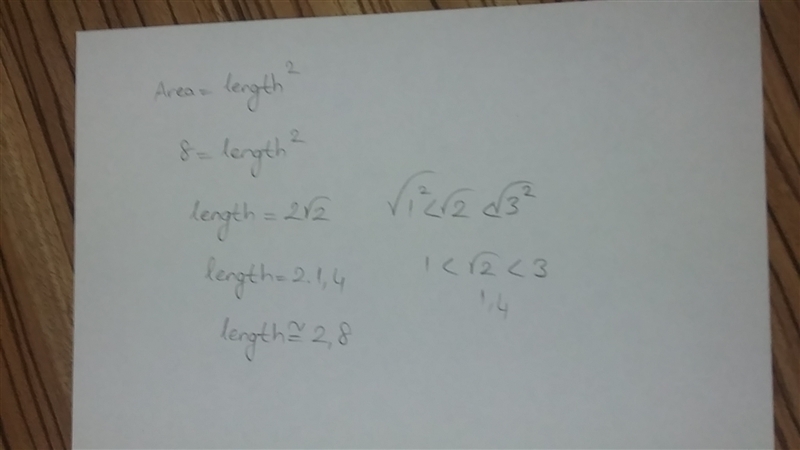 Area = length²
8 = length²
length = 2√2 √1² < √2 < √3²
length = 2.1,4 1 < √2 < 3
1,4
length ≅ 2,8